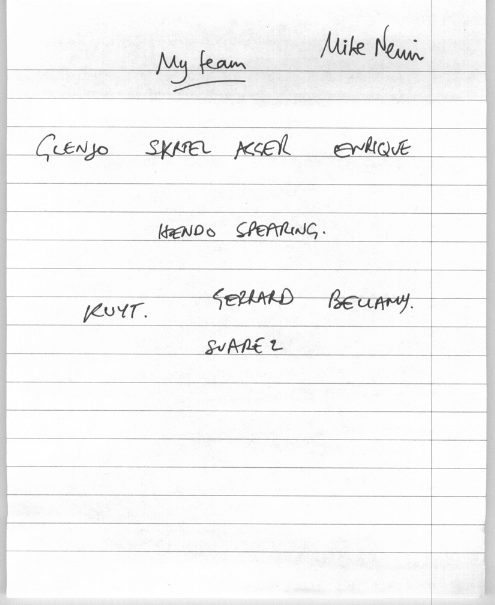 Mike Nevin
My team
GLENJO SKRTEL AGGER ENRIQUE
HENDO SPEARING.
KUYT. GERRARD BELLAMY.
SUAREZ